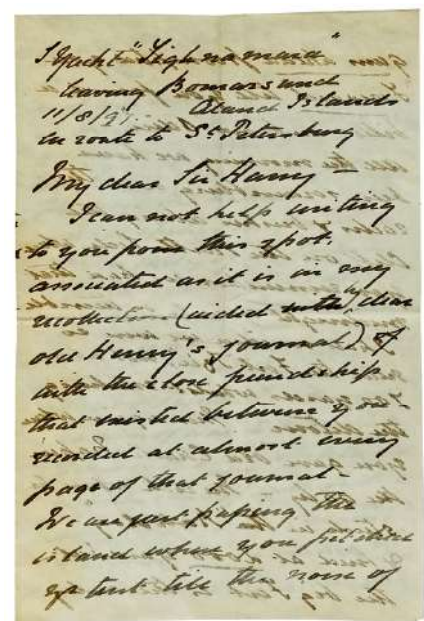 S Yacht "Tighnamara"
leaving Bomarsund
11/8/97. Aland Islands
en route to St Petersburg
My dear Sir Harry –
I can not help writing
to you from this spot.
associated as it is in my
recollection (aided with dear
old Henry's journal) of
with the close friendship
that existed between you –
recorded at almost every
page of that journal –
We are just passing the
island where you
tent till the noise of